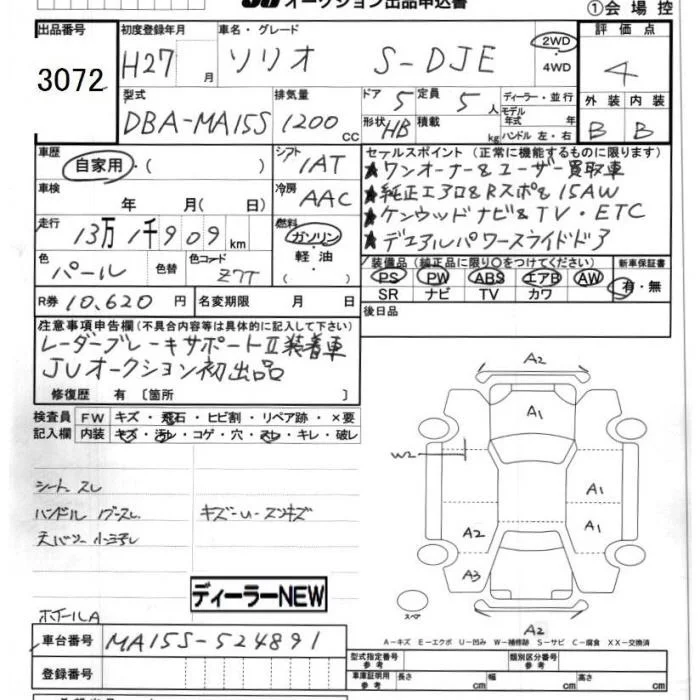 オークション出品申込書
①会場控
出品番号 初度登録年月 車名・グレード 評価点
3072 H27 月 ソリオ S-DJE 2WD ・ 4WD 4
型式 排気量 ドア 5 定員 5 人 ディーラー・並行 外装 内装
DBA-MA15S 1200 cc 形状 HB 積載 kg モデル年式 年式 ハンドル 左・右 B B
車歴 自家用・( ) シフト 1AT セールスポイント (正常に機能するものに限ります)
★ワンオーナー&ユーザー買取車
車検 年 月( 日) 冷房 AAC ★純正エアロ&Rスポ&15AW
★ケンウッドナビ&TV・ETC
走行 13万1千909km 燃料 ガソリン・軽油・( ) ★デュアルパワースライドドア
色 パール 色替 色コード Z7T 装備品 (純正品に限り○をつけてください) 新車保証書
PS PW ABS エアB AW 有・無
SR ナビ TV カワ
R券 10,620 円 名変期限 月 日 後日品
注意事項申告欄(不具合内容等は具体的に記入して下さい)
レーダーブレーキサポートⅡ装着車
JUオークション初出品
修復歴 有 〔箇所 〕
検査員 FW キズ・飛石・ヒビ割・リペア跡・×要
記入欄 内装 キズ・汚レ・コゲ・穴・スレ・キレ・破レ
A2
A1
W2
シート スレ
A1
ハンドル
キズ-U-スンキズ
A2 A1
A3
ディーラーNEW
ホイールA
スペア
A2
車台番号 MA15S-524891
A-キズ E-エクボ U-凹み W-補修跡 S-サビ C-腐食 XX-交換済
型式指定番号 参考 類別区分番号 参考
登録番号 車庫証明用 参考 長さ cm 幅 cm 高さ cm